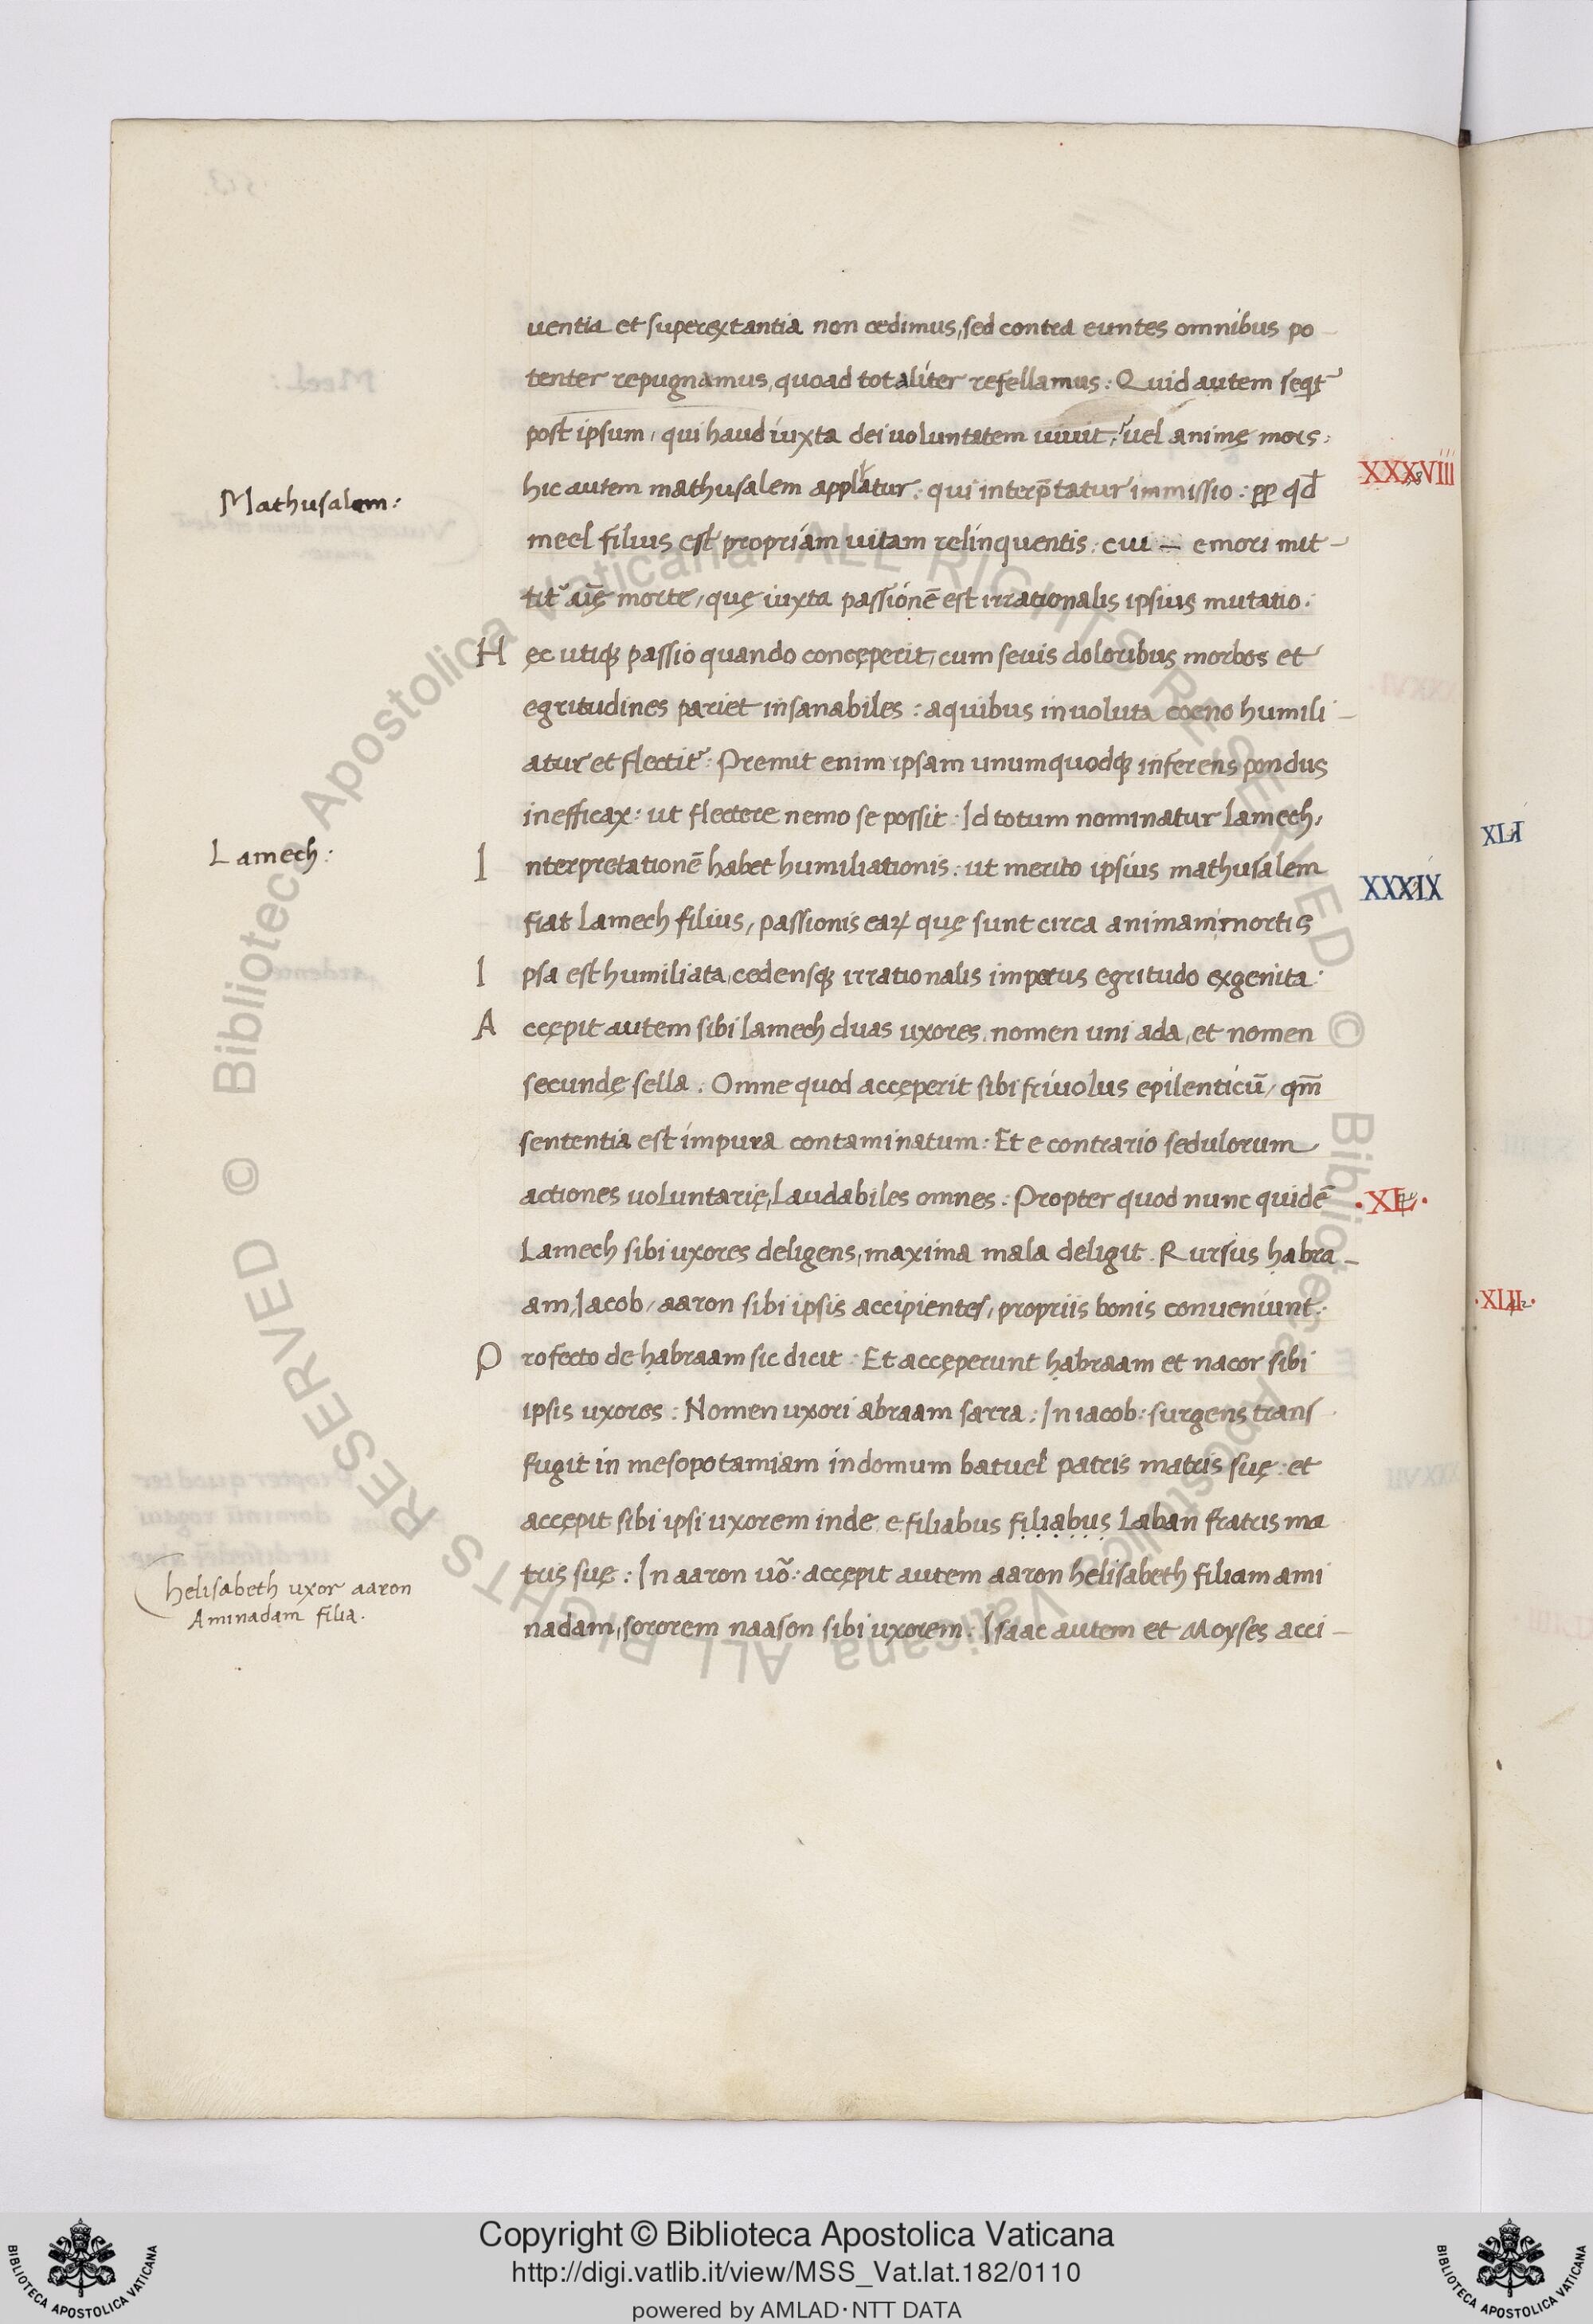 uentia et superextantia non cedimus, sed contra euntes omnibus po-
tenter repugnamus, quoad totaliter refellamus: Quid autem seqt̃
post ipsum, qui haud iuxta dei uoluntatem uiuit, uel animę mors:
Mathusalem:
hic autem mathusalem applatur: qui interp̃tatur immissio: ꝓp qđ
XXXVIII
meel filius est propriam uitam relinquentis: cui — emori mit-
tit̃ aĩę morte, quę iuxta passionē est irrationalis ipsius mutatio.
Hęc utiqꝫ passio quando concęperit, cum seuis doloribus morbos et
egritudines pariet insanabiles: a quibus inuoluta coeno humili-
atur et flectit̃: Premit enim ipsam unumquodqꝫ inferens pondus
inefficax: ut flectere nemo se possit: Id totum nominatur lamech,
Lamech:
Interpretationē habet humiliationis: ut merito ipsius mathusalem
XXXIX
fiat lamech filius, passionis eaꝝ quę sunt circa animam mortis
Ipsa est humiliata, cedensqꝫ irrationalis impetus egritudo exgenita:
Accępit autem sibi lamech duas uxores, nomen uni ada, et nomen
secundę sella. Omne quod accęperit sibi friuolus epilenticū, qm̄
sententia est impura contaminatum: Et e contrario sedulorum
actiones uoluntarię, Laudabiles omnes: Propter quod nunc quidē
·XL·
Lamech sibi uxores deligens, maxima mala deligit. Rursus habra-
am, Iacob, aaron sibi ipsis accipientes, propriis bonis conueniunt:
Profecto de habraam sic dicit: Et accęperunt habraam et nacor sibi
ipsis uxores: Nomen uxori abraam sarra: In iacob: surgens trans
fugit in mesopotamiam in domum batuel patris matris suę: et
accępit sibi ipsi uxorem inde e filiabus filiabus Laban fratris ma
tris suę: In aaron uõ: accępit autem aaron helisabeth filiam ami
helisabeth uxor aaron
Aminadam filia.
nadam, sororem naason sibi uxorem: Isaac autem et Moyses acci-
XLI
·XLII·
© Biblioteca Apostolica Vaticana ALL RIGHTS RESERVED © Biblioteca Apostolica Vaticana ALL RIGHTS RESERVED
Copyright © Biblioteca Apostolica Vaticana
http://digi.vatlib.it/view/MSS_Vat.lat.182/0110
powered by AMLAD·NTT DATA
BIBLIOTECA APOSTOLICA VATICANA
BIBLIOTECA APOSTOLICA VATICANA